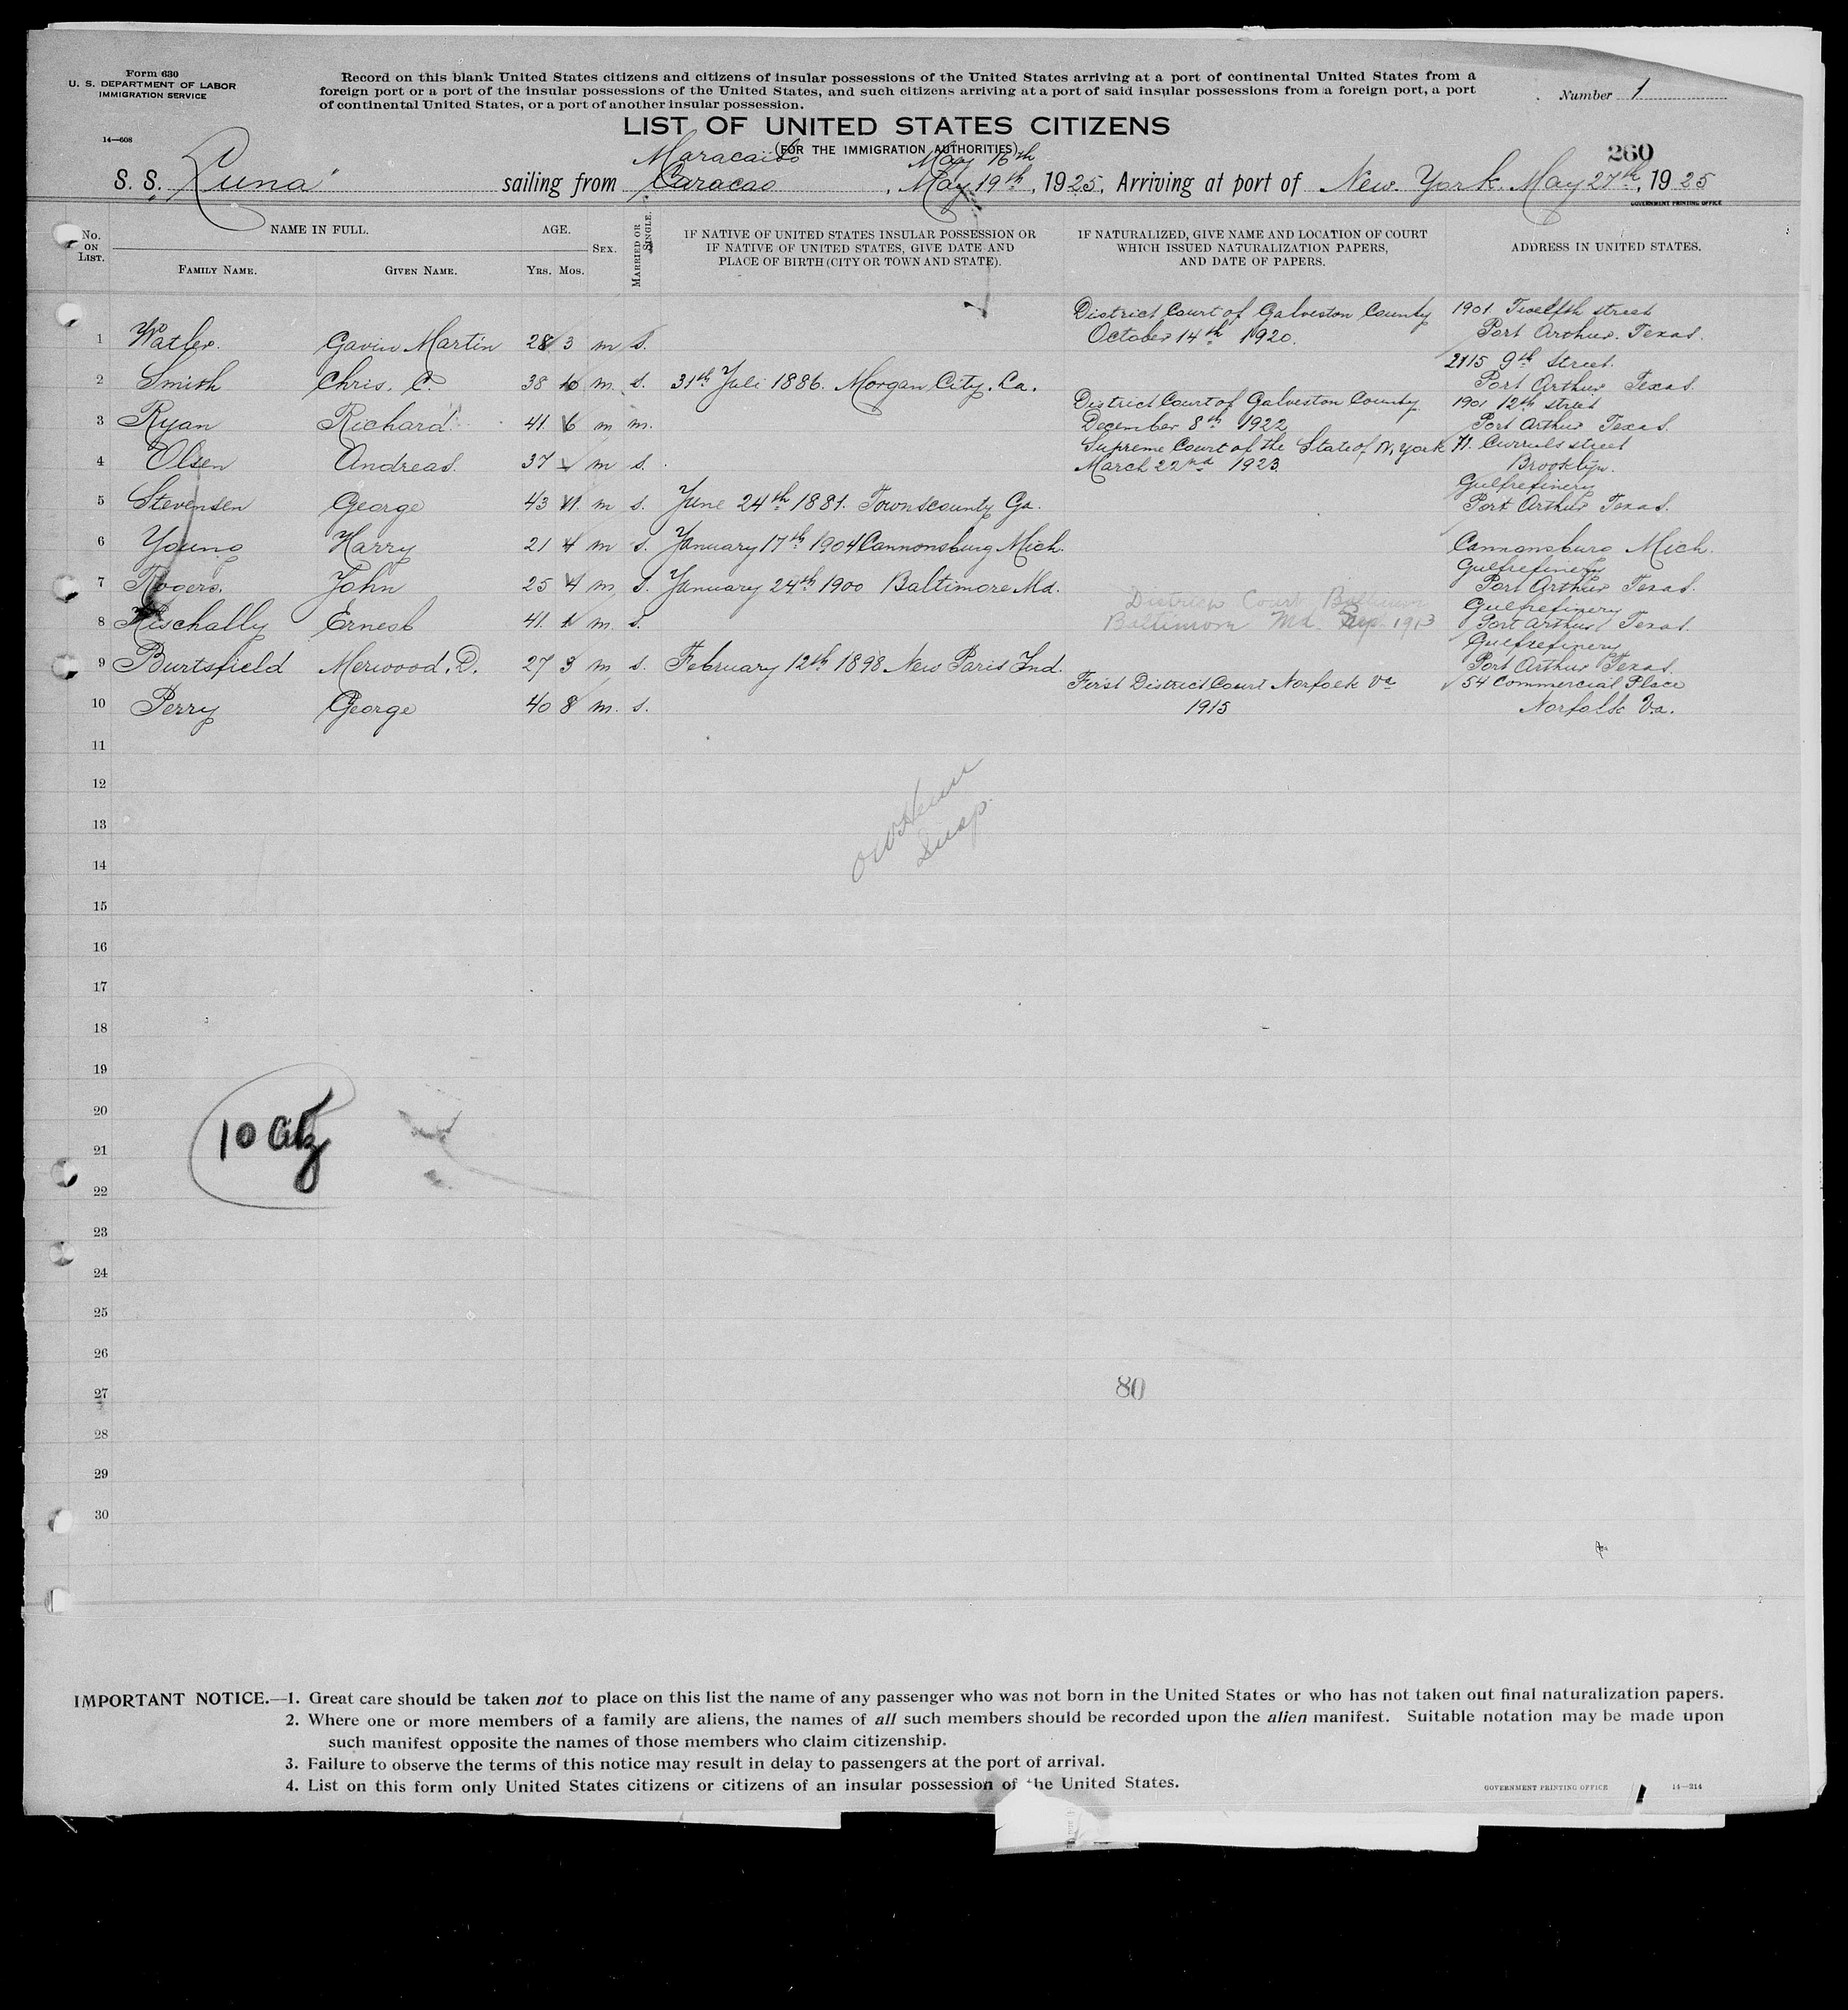 Form 630
U. S. DEPARTMENT OF LABOR
IMMIGRATION SERVICE
14—608
Record on this blank United States citizens and citizens of insular possessions of the United States arriving at a port of continental United States from a
foreign port or a port of the insular possessions of the United States, and such citizens arriving at a port of said insular possessions from a foreign port, a port
of continental United States, or a port of another insular possession.
Number 1
LIST OF UNITED STATES CITIZENS
(FOR THE IMMIGRATION AUTHORITIES)
260
Maracaibo May 16th
S. S. Luna sailing from Caracao, May 19th, 1925, Arriving at port of New York. May 27th, 1925
GOVERNMENT PRINTING OFFICE
No. ON LIST.
NAME IN FULL.
FAMILY NAME. GIVEN NAME.
AGE.
YRS. MOS.
SEX.
MARRIED OR SINGLE.
IF NATIVE OF UNITED STATES INSULAR POSSESSION OR
IF NATIVE OF UNITED STATES, GIVE DATE AND
PLACE OF BIRTH (CITY OR TOWN AND STATE).
IF NATURALIZED, GIVE NAME AND LOCATION OF COURT
WHICH ISSUED NATURALIZATION PAPERS,
AND DATE OF PAPERS.
ADDRESS IN UNITED STATES.
District Court of Galveston County 1901 Twelfth street
1 Watler. Gavin Martin 28 3 m s. October 14th 1920. Port Arthur. Texas.
2115 9th Street.
2 Smith Chris. C. 38 10 m. s. 31th Juli 1886. Morgan City. La. Port Arthur Texas.
District Court of Galveston County 1901 12th street
3 Ryan Richard 41 6 m m. December 8th 1922 Port Arthur Texas.
Supreme Court of the State of N. York 71. street
4 Olsen Andreas. 37 m s. March 22nd 1923 Brooklyn.
Gulfrefinery
5 Stevensen George 43 11. m s. June 24th 1881. Townscounty Ga. Port Arthur Texas.
6 Young Harry 21 4 m s. January 17th 1904 Cannonsburg Mich. Cannonsburg Mich.
Gulfrefinery
7 Rogers. John 25 4 m. s. January 24th 1900 Baltimore Md. Port Arthur Texas.
District Court Gulfrefinery
8 Ernest 41. 1 m. s. Baltimore Md. Sep. 1913 Port Arthur Texas.
Gulfrefinery
9 Burtsfield Merwood. D. 27 3 m s. February 12th 1898 New Paris Ind. Port Arthur Texas
First District Court Norfolk Va 54 Commercial Place
10 Perry George 40 8 m. s. 1915 Norfolk Va.
11
12
13
Insp.
14
15
16
17
18
19
20
10 Citz
21
22
23
24
25
26
27
80
28
29
30
IMPORTANT NOTICE.—1. Great care should be taken not to place on this list the name of any passenger who was not born in the United States or who has not taken out final naturalization papers.
2. Where one or more members of a family are aliens, the names of all such members should be recorded upon the alien manifest. Suitable notation may be made upon
such manifest opposite the names of those members who claim citizenship.
3. Failure to observe the terms of this notice may result in delay to passengers at the port of arrival.
4. List on this form only United States citizens or citizens of an insular possession of the United States.
GOVERNMENT PRINTING OFFICE 14—214